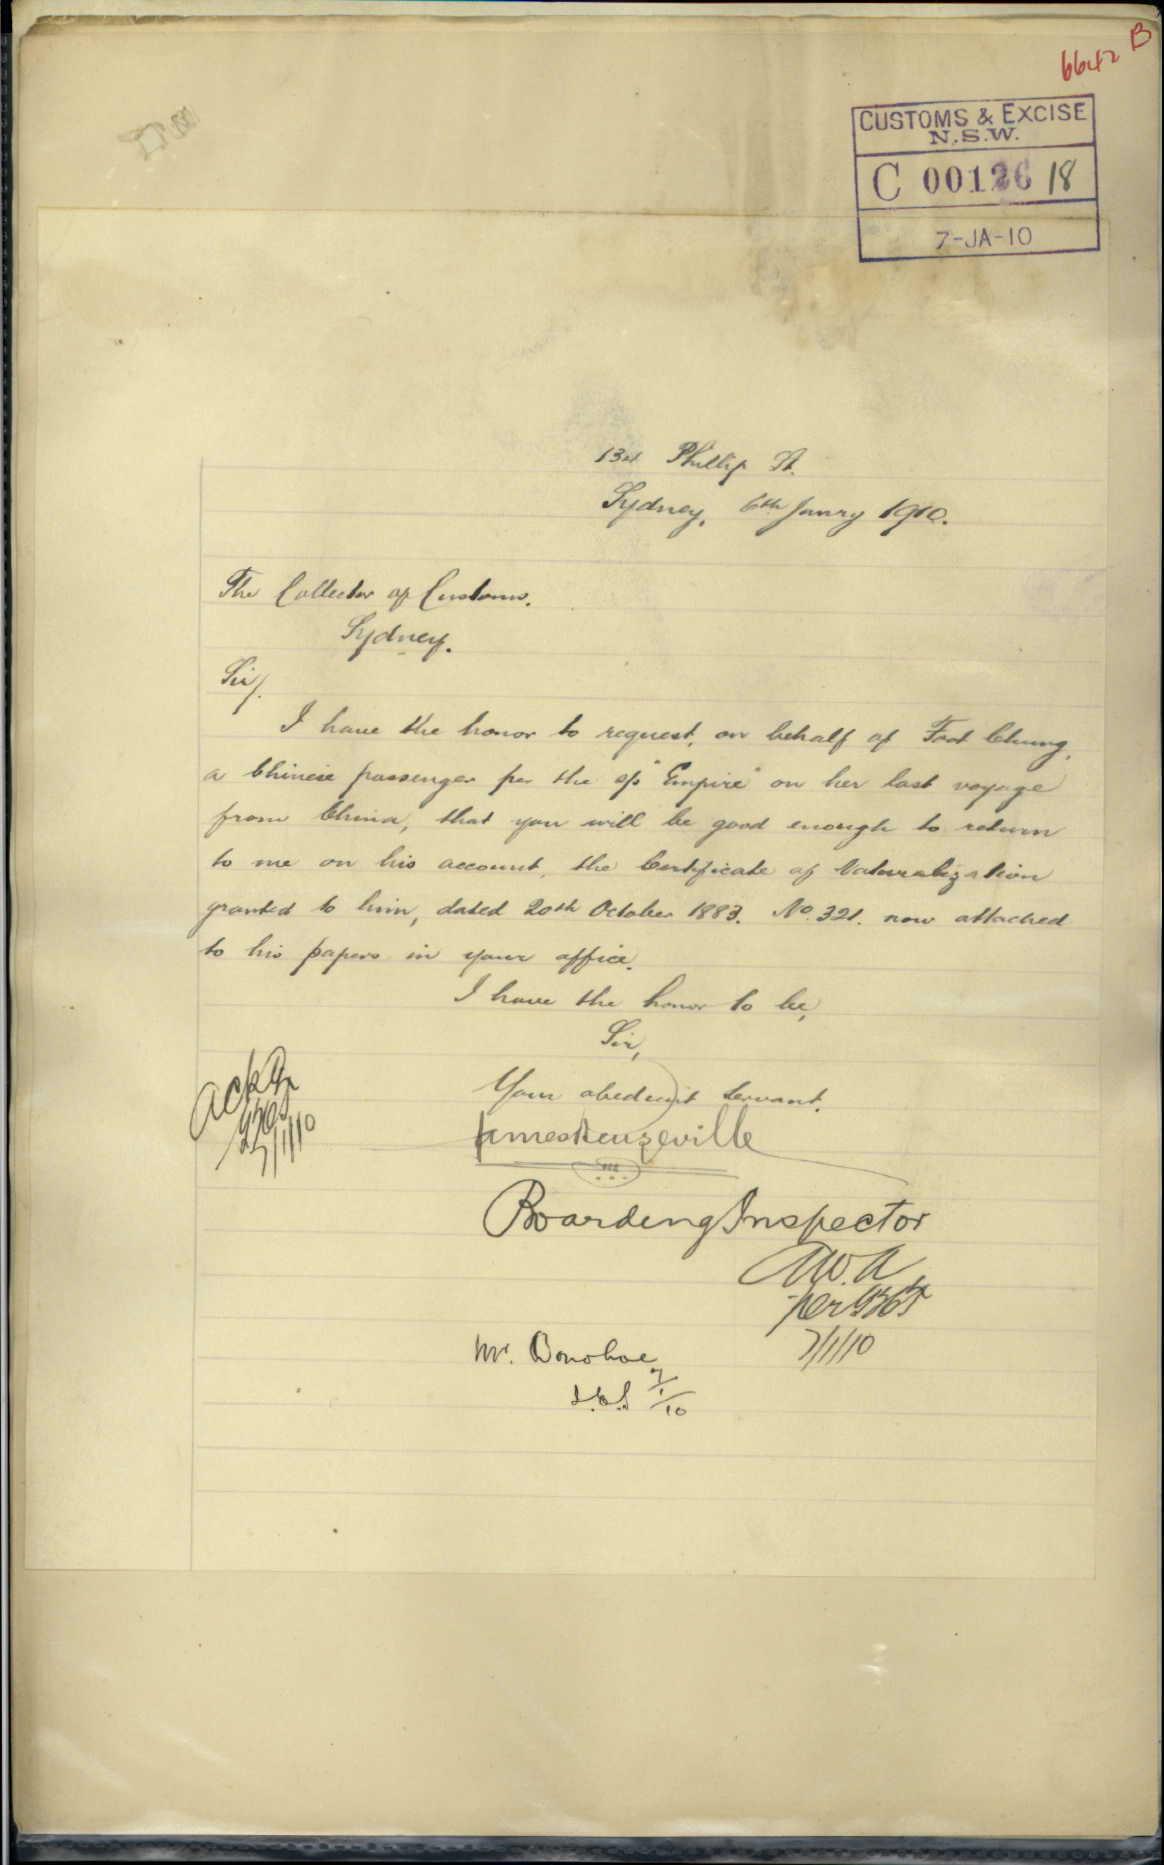 6642 B
CUSTOMS & EXCISE
N.S.W.
C 00126 18
7-JA-10
Phillip St.
Sydney, 6th Janry 1910.
The Collector of Customs.
Sydney.
Sir/.
I have the honor to request, on behalf of Foot Chung,
a Chinese passenger per the s/s "Empire" on her last voyage
from China, that you will be good enough to return
to me on his account, the Certificate of Naturalization
granted to him, dated 20th October 1883. No. 321. now attached
to his papers in your office.
I have the honor to be,
Sir,
Your obedient Servant.
James Neuzeville
Boarding Inspector
per
7/1/10
7/1/10
Mr. Donohoe
7/1/10